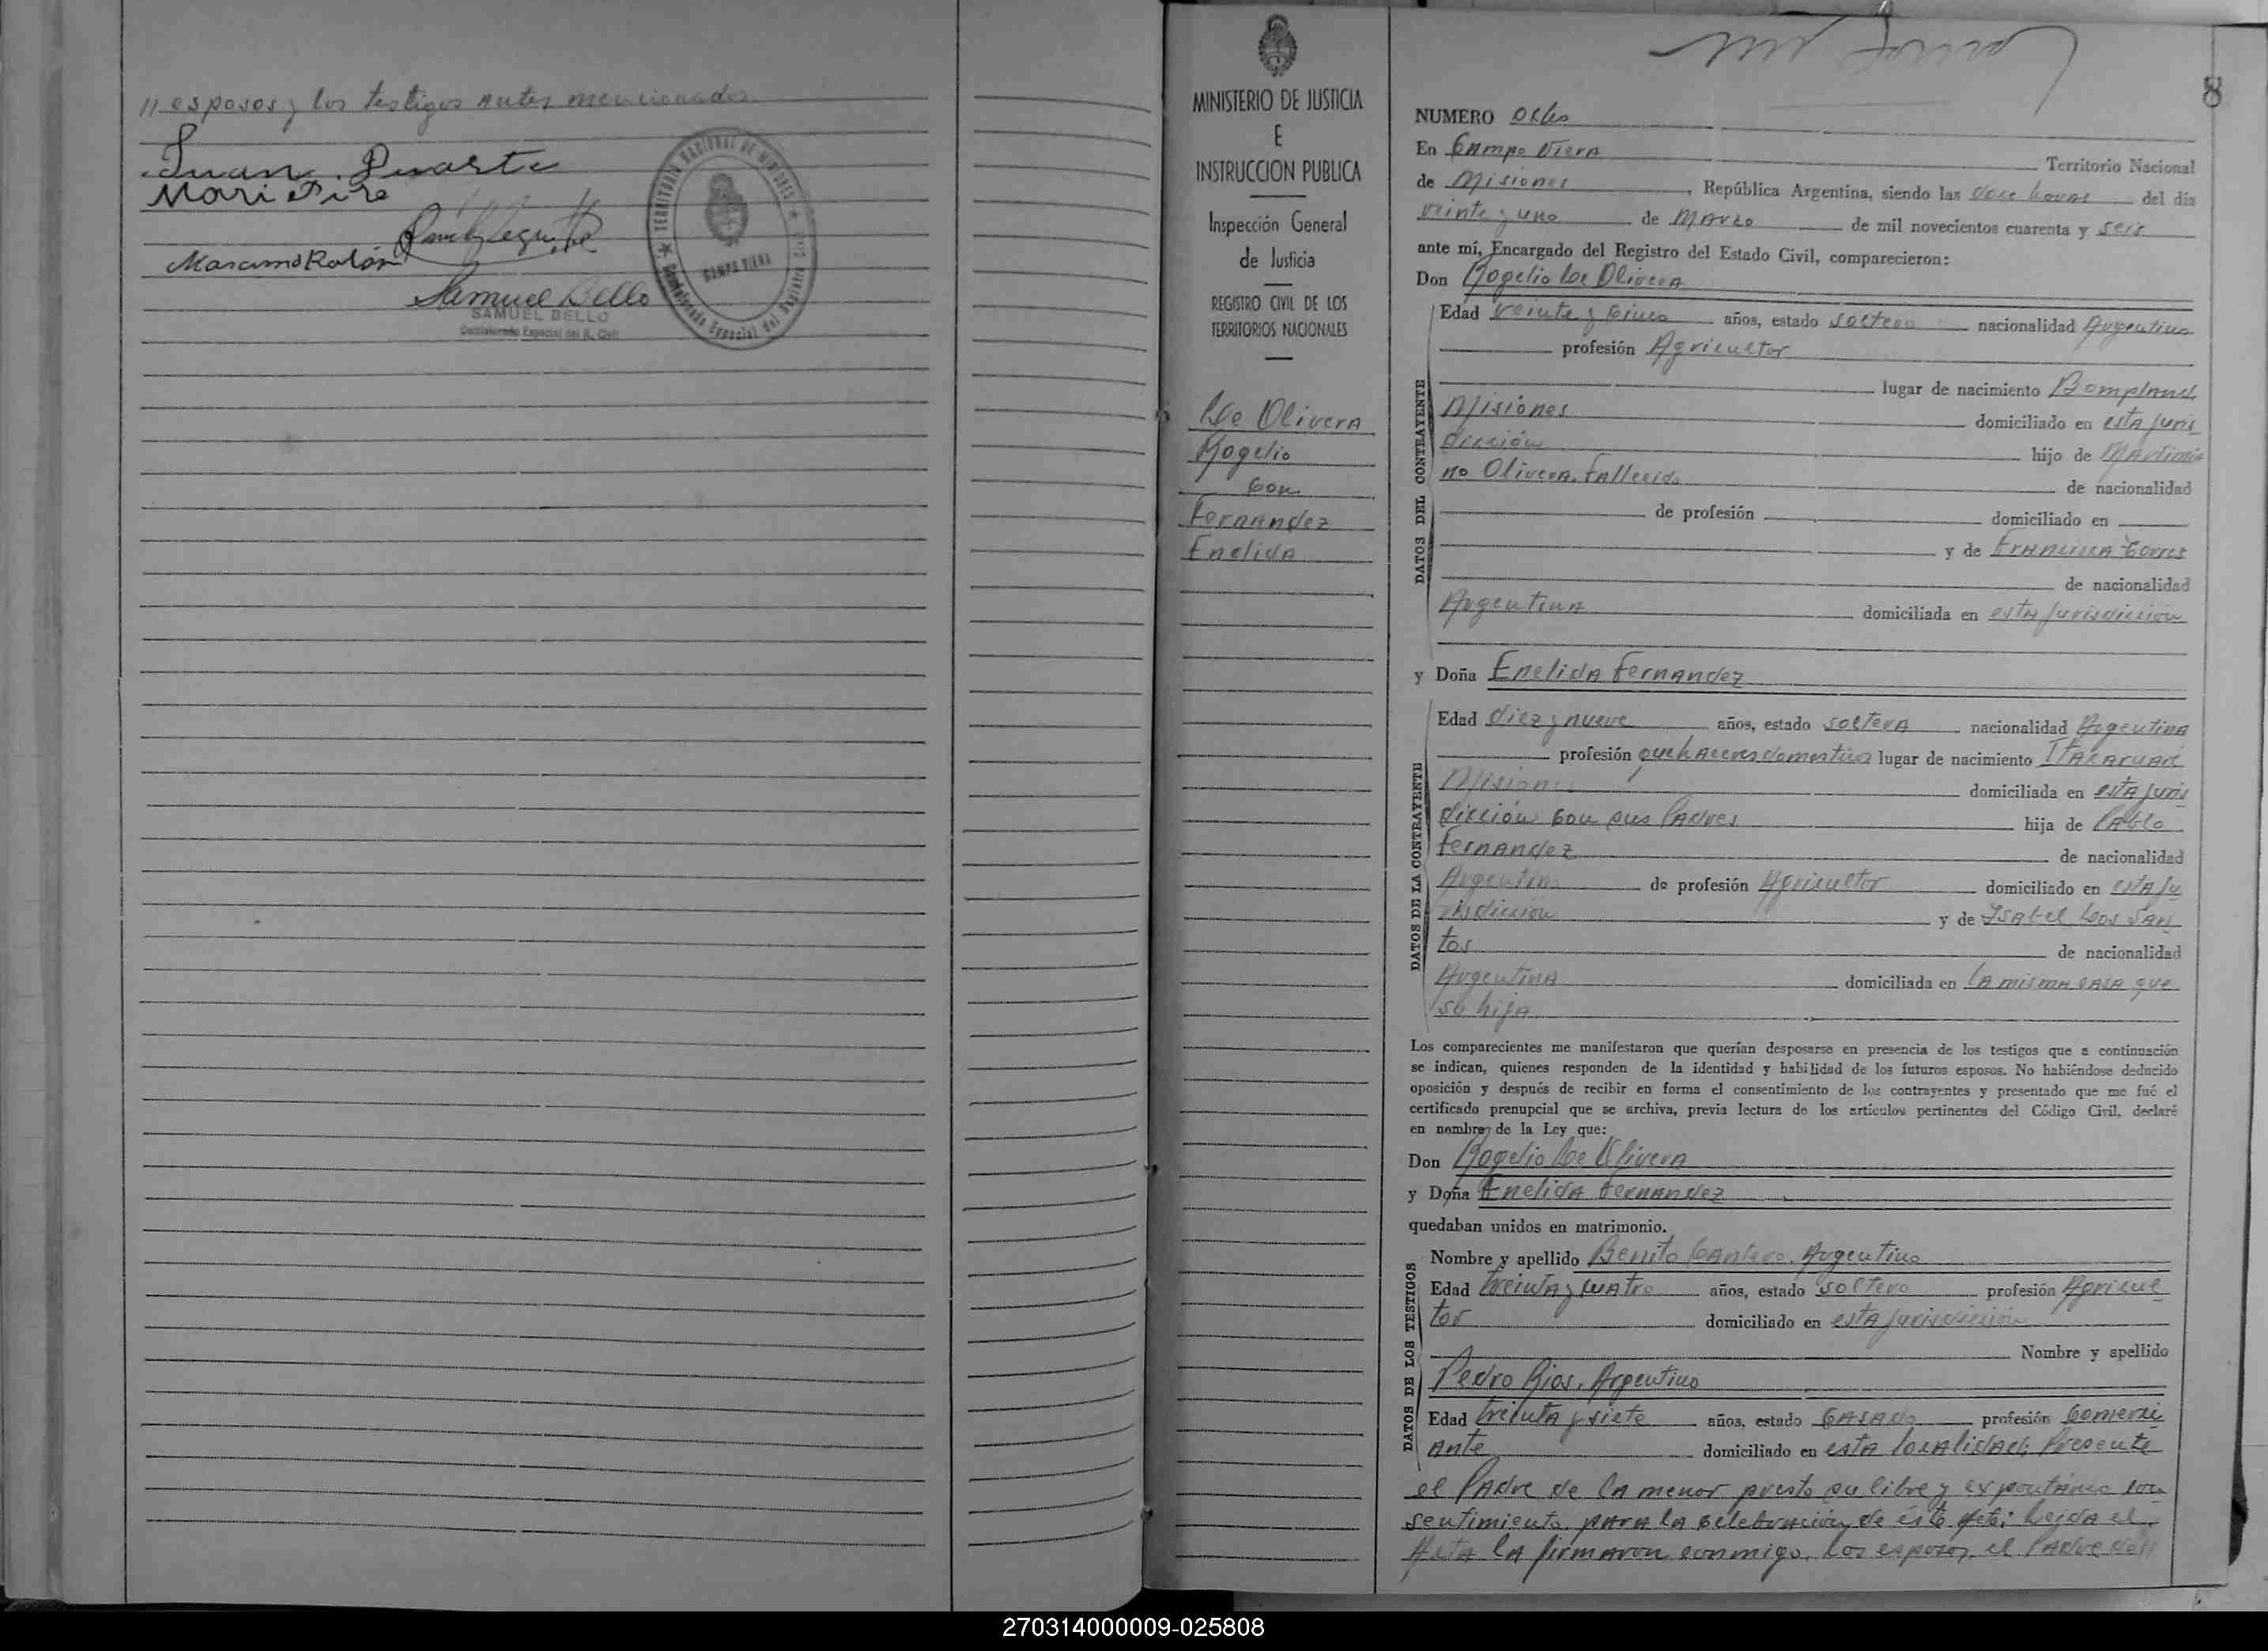 // esposos y los testigos antes mencionados
Juan Duarte
Mari Pire
Samuel Bello
SAMUEL BELLO
Comisionado Especial del R. Civil
TERRITORIO NACIONAL DE MISIONES
CAMPO VIERA
MINISTERIO DE JUSTICIA
E
INSTRUCCION PUBLICA
Inspección General
de Justicia
REGISTRO CIVIL DE LOS
TERRITORIOS NACIONALES
De Olivera
Rogelio
con
Fernandez
Enelida
8
NUMERO Ocho
En Campo Viera Territorio Nacional
de Misiones, República Argentina, siendo las doce horas del día
veinte y uno de Marzo de mil novecientos cuarenta y seis
ante mí, Encargado del Registro del Estado Civil, comparecieron:
Don Rogelio De Olivera
DATOS DEL CONTRAYENTE
Edad veinte y cinco años, estado soltero nacionalidad Argentino
profesión Agricultor
lugar de nacimiento Bompland,
Misiones domiciliado en esta juris
dicción hijo de Martinia
no Olivera, fallecido de nacionalidad
de profesión domiciliado en
y de Francisca Torres
de nacionalidad
Argentina domiciliada en esta jurisdicción
y Doña Enelida Fernandez
DATOS DE LA CONTRAYENTE
Edad diez y nueve años, estado soltera nacionalidad Argentina
profesión quehaceres domesticos lugar de nacimiento Itacaruaré
Misiones domiciliada en esta juris
dicción con sus Padres hija de Pablo
Fernandez de nacionalidad
Argentino de profesión Agricultor domiciliado en esta ju
risdicción y de Ysabel Dos San
tos de nacionalidad
Argentina domiciliada en la misma casa que
su hija
Los comparecientes me manifestaron que querían desposarse en presencia de los testigos que a continuación
se indican, quienes responden de la identidad y habilidad de los futuros esposos. No habiéndose deducido
oposición y después de recibir en forma el consentimiento de los contrayentes y presentado que me fué el
certificado prenupcial que se archiva, previa lectura de los artículos pertinentes del Código Civil, declaré
en nombre de la Ley que:
Don Rogelio De Olivera
y Doña Enelida Fernandez
quedaban unidos en matrimonio.
DATOS DE LOS TESTIGOS
Nombre y apellido Benito Cantero, Argentino
Edad treinta y cuatro años, estado soltero profesión Agricul
tor domiciliado en esta jurisdicción
Nombre y apellido
Pedro Rios, Argentino
Edad treinta y siete años, estado casado profesión Comerci
ante domiciliado en esta localidad; Presente
el Padre de la menor presto su libre y expontáneo con
sentimiento para la celebración de éste acto; Leida el
Acta la firmaron conmigo, los esposos, el Padre de
270314000009-025808